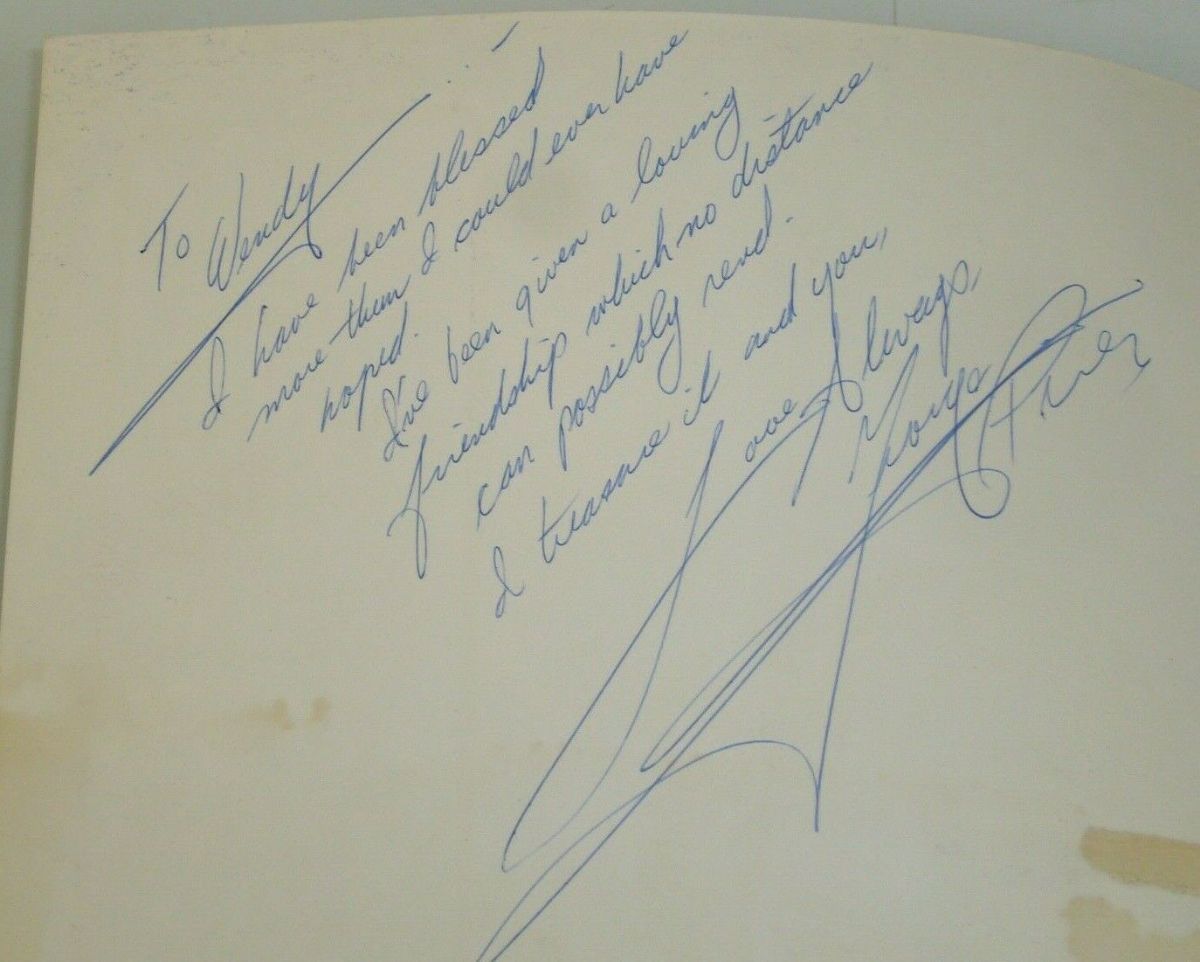 To Wendy
I have been blessed
more than I could ever have
hoped.
I've been given a loving
friendship which no distance
can possibly rend.
I treasure it and you,
Love Always,